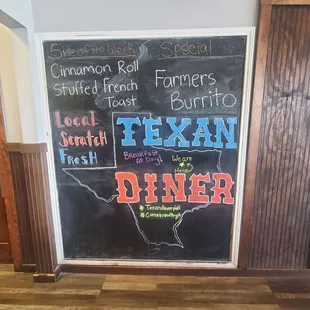 Side of the Week
Special
Cinnamon Roll
Stuffed French
Toast
Farmers
Burrito
Local
Scratch
Fresh
TEXAN
Breakfast
All Day!
We are
Here
DINER